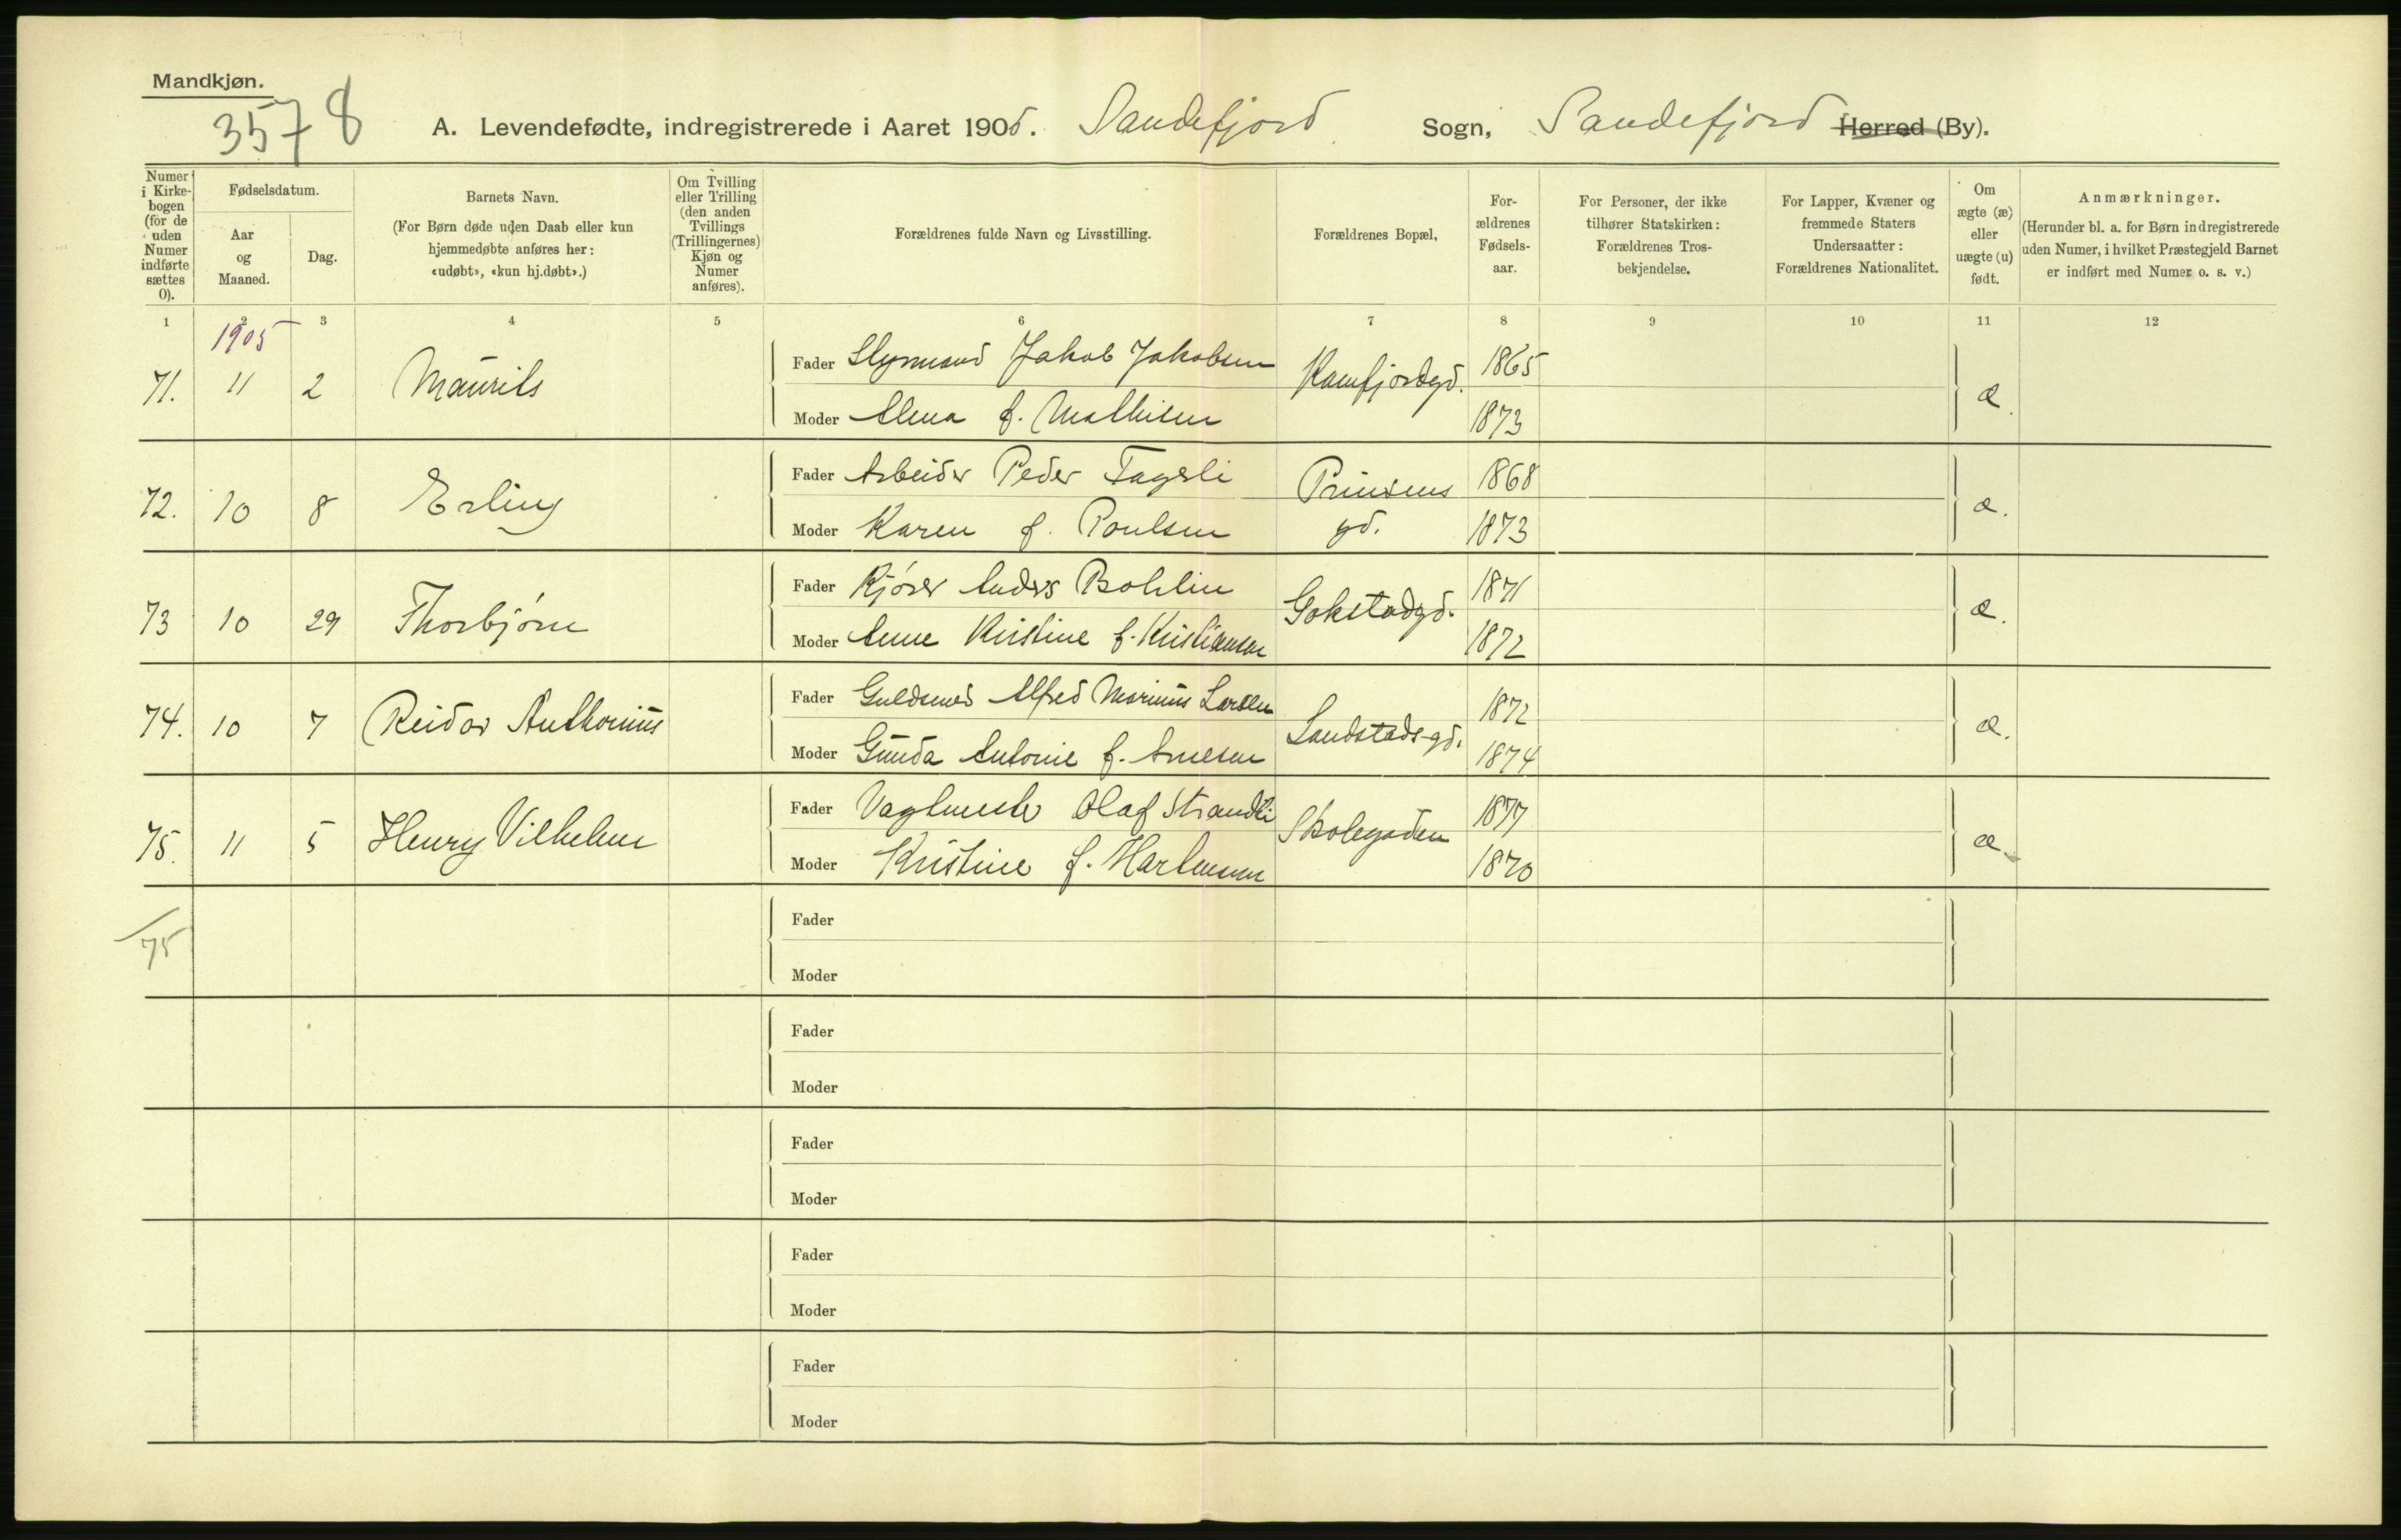 Mandkjøn.
3578
A. Levendefødte, indregistrerede i Aaret 1905. Sandefjord Sogn, Sandefjord Herred (By).
Numer i Kirkebogen (for de uden Numer indførte sættes 0).
Fødselsdatum.
Aar og Maaned.
Dag.
Barnets Navn.
(For Børn døde uden Daab eller kun hjemmedøbte anføres her: «udøbt», «kun hj.døbt».)
Om Tvilling eller Trilling (den anden Tvillings (Trillingernes) Kjøn og Numer anføres).
Forældrenes fulde Navn og Livsstilling.
Forældrenes Bopæl,
Forældrenes Fødselsaar.
For Personer, der ikke tilhører Statskirken: Forældrenes Trosbekjendelse.
For Lapper, Kvæner og fremmede Staters Undersaatter: Forældrenes Nationalitet.
Om ægte (æ) eller uægte (u) født.
Anmærkninger.
(Herunder bl. a. for Børn indregistrerede uden Numer, i hvilket Præstegjeld Barnet er indført med Numer o. s. v.)
1 2 3 4 5 6 7 8 9 10 11 12
1905
71. 11 2 Maurits Fader Styrmand Jakob Jakobsen Kamfjordgd. 1865 æ.
Moder Alma f. Mathisen 1873
72. 10 8 Erling Fader Arbeider Peder Fagerli Prinsens 1868 æ.
Moder Karen f. Poulsen gd. 1873
73 10 29 Thorbjørn Fader Kjører Anders Bohlin Gokstadgd. 1871 æ.
Moder Anne Kristine f. Kristiansen 1872
74. 10 7 Reidar Anthonius Fader Guldsmed Alfred Marinius Larsen Landstads-gd. 1872 æ.
Moder Gunda Antonie f. Arnesen 1874
75. 11 5 Henry Vilhelm Fader Vagtmester Olaf Strandli Skolegaden 1877 æ.
Moder Kristine f. 1870
75 Fader
Moder
Fader
Moder
Fader
Moder
Fader
Moder
Fader
Moder